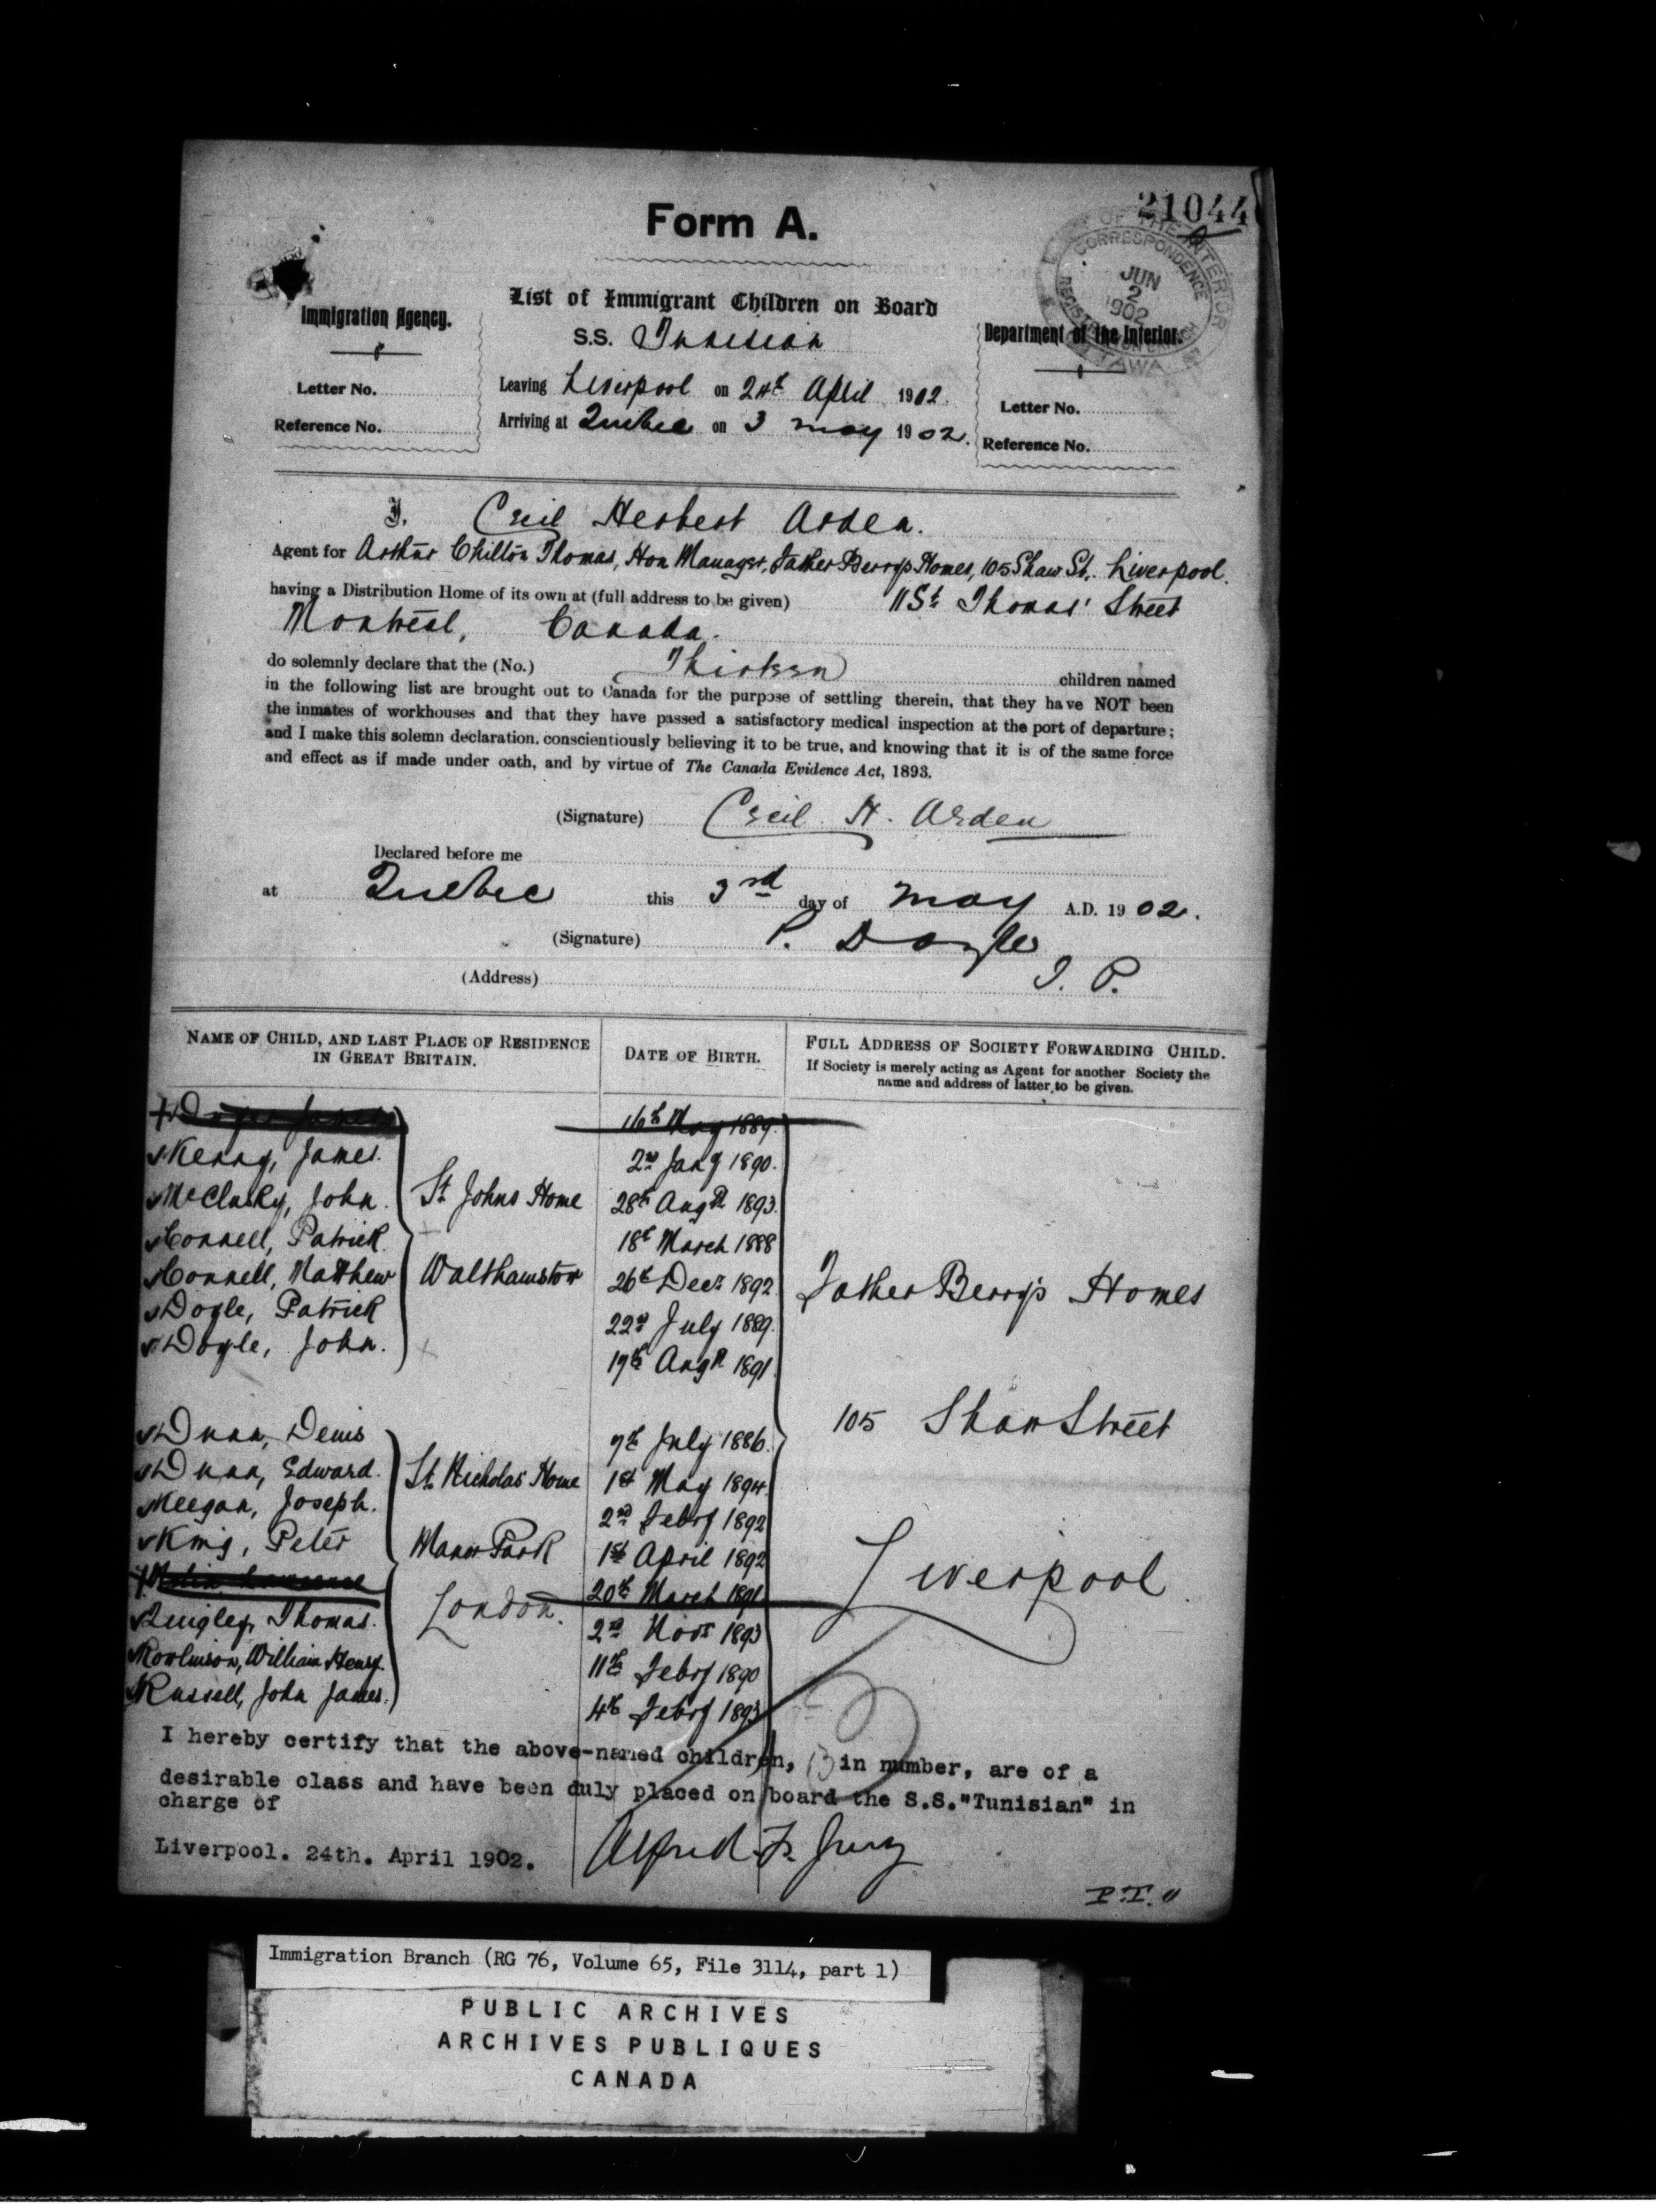 21044
DEPARTMENT OF THE INTERIOR
CORRESPONDENCE
JUN
2
1902
REGISTRATION BRANCH
OTTAWA
Form A.
List of Immigrant Children on Board
Immigration Agency.
S.S. Tunisian
Department of the Interior.
Letter No.
Leaving Liverpool on 24th April 1902.
Letter No.
Reference No.
Arriving at Quebec on 3 may 1902.
Reference No.
I, Cecil Herbert Arden.
Agent for Arthur Chilton Thomas, Hon Manager, Father Berry's Homes, 105 Shaw St, Liverpool.
having a Distribution Home of its own at (full address to be given) 11 St. Thomas' Street
Montreal, Canada.
do solemnly declare that the (No.) Thirteen children named
in the following list are brought out to Canada for the purpose of settling therein, that they have NOT been
the inmates of workhouses and that they have passed a satisfactory medical inspection at the port of departure;
and I make this solemn declaration, conscientiously believing it to be true, and knowing that it is of the same force
and effect as if made under oath, and by virtue of The Canada Evidence Act, 1893.
(Signature) Cecil H. Arden
Declared before me
at Quebec this 3rd day of may A.D. 1902.
(Signature) P. Doyle
(Address) J. P.
NAME OF CHILD, AND LAST PLACE OF RESIDENCE IN GREAT BRITAIN.
DATE OF BIRTH.
FULL ADDRESS OF SOCIETY FORWARDING CHILD.
If Society is merely acting as Agent for another Society the name and address of latter to be given.
16th May 1889.
Kenny, James. 2nd Jany 1890.
McClusky, John. St. Johns Home 28th Augst 1893.
Connell, Patrick 18th March 1888
Connell, Matthew Walthamstow 26th Decr 1892. Father Berry's Homes
Doyle, Patrick 22nd July 1889.
Doyle, John. 19th Augst 1891.
105 Shaw Street
Dunn, Denis 7th July 1886.
Dunn, Edward. St. Nicholas' Home 1st May 1894.
Keegan, Joseph. 2nd Febry 1892
King, Peter Manor Park 1st April 1892
Liverpool
Lawrence London. 20th March 1891
Quigley, Thomas. 2nd Novr 1893
Rowlinson, William Henry. 11th Febry 1890
Russell, John James. 4th Febry 1893
I hereby certify that the above-named children, 13 in number, are of a
desirable class and have been duly placed on board the S.S."Tunisian" in
charge of
Liverpool. 24th. April 1902. Alfred F. Jury
P.T.O
Immigration Branch (RG 76, Volume 65, File 3114, part 1)
PUBLIC ARCHIVES
ARCHIVES PUBLIQUES
CANADA